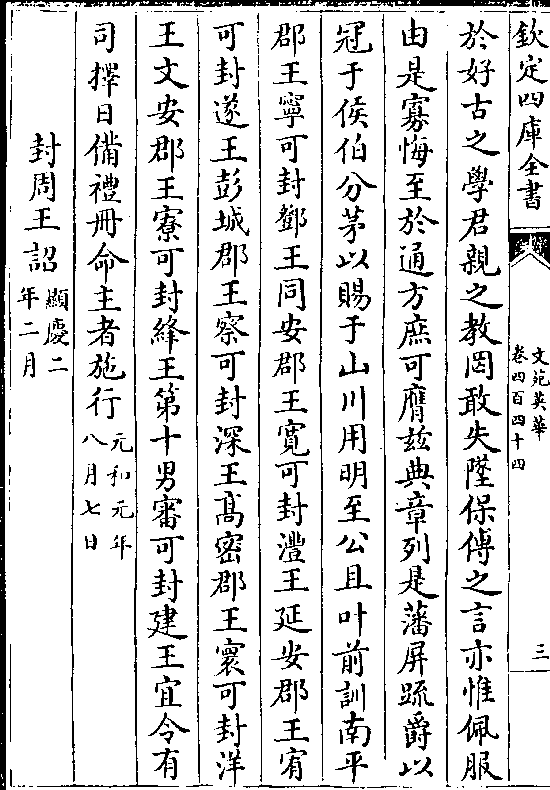 欽定四庫全書
文苑英華
卷四百四十四
三
於好古之學君親之教罔敢失墜保傅之言亦惟佩服
由是寡悔至於通方庶可膺兹典章列是藩屏疏爵以
冠于侯伯分茅以賜于山川用明至公且叶前訓南平
郡王寧可封鄧王同安郡王寛可封澧王延安郡王宥
可封遂王彭城郡王察可封深王髙密郡王寰可封洋
王文安郡王寮可封絳王第十男審可封建王宜令有
司擇日備禮冊命主者施行元和元年八月七日
封周王詔顯慶二年二月